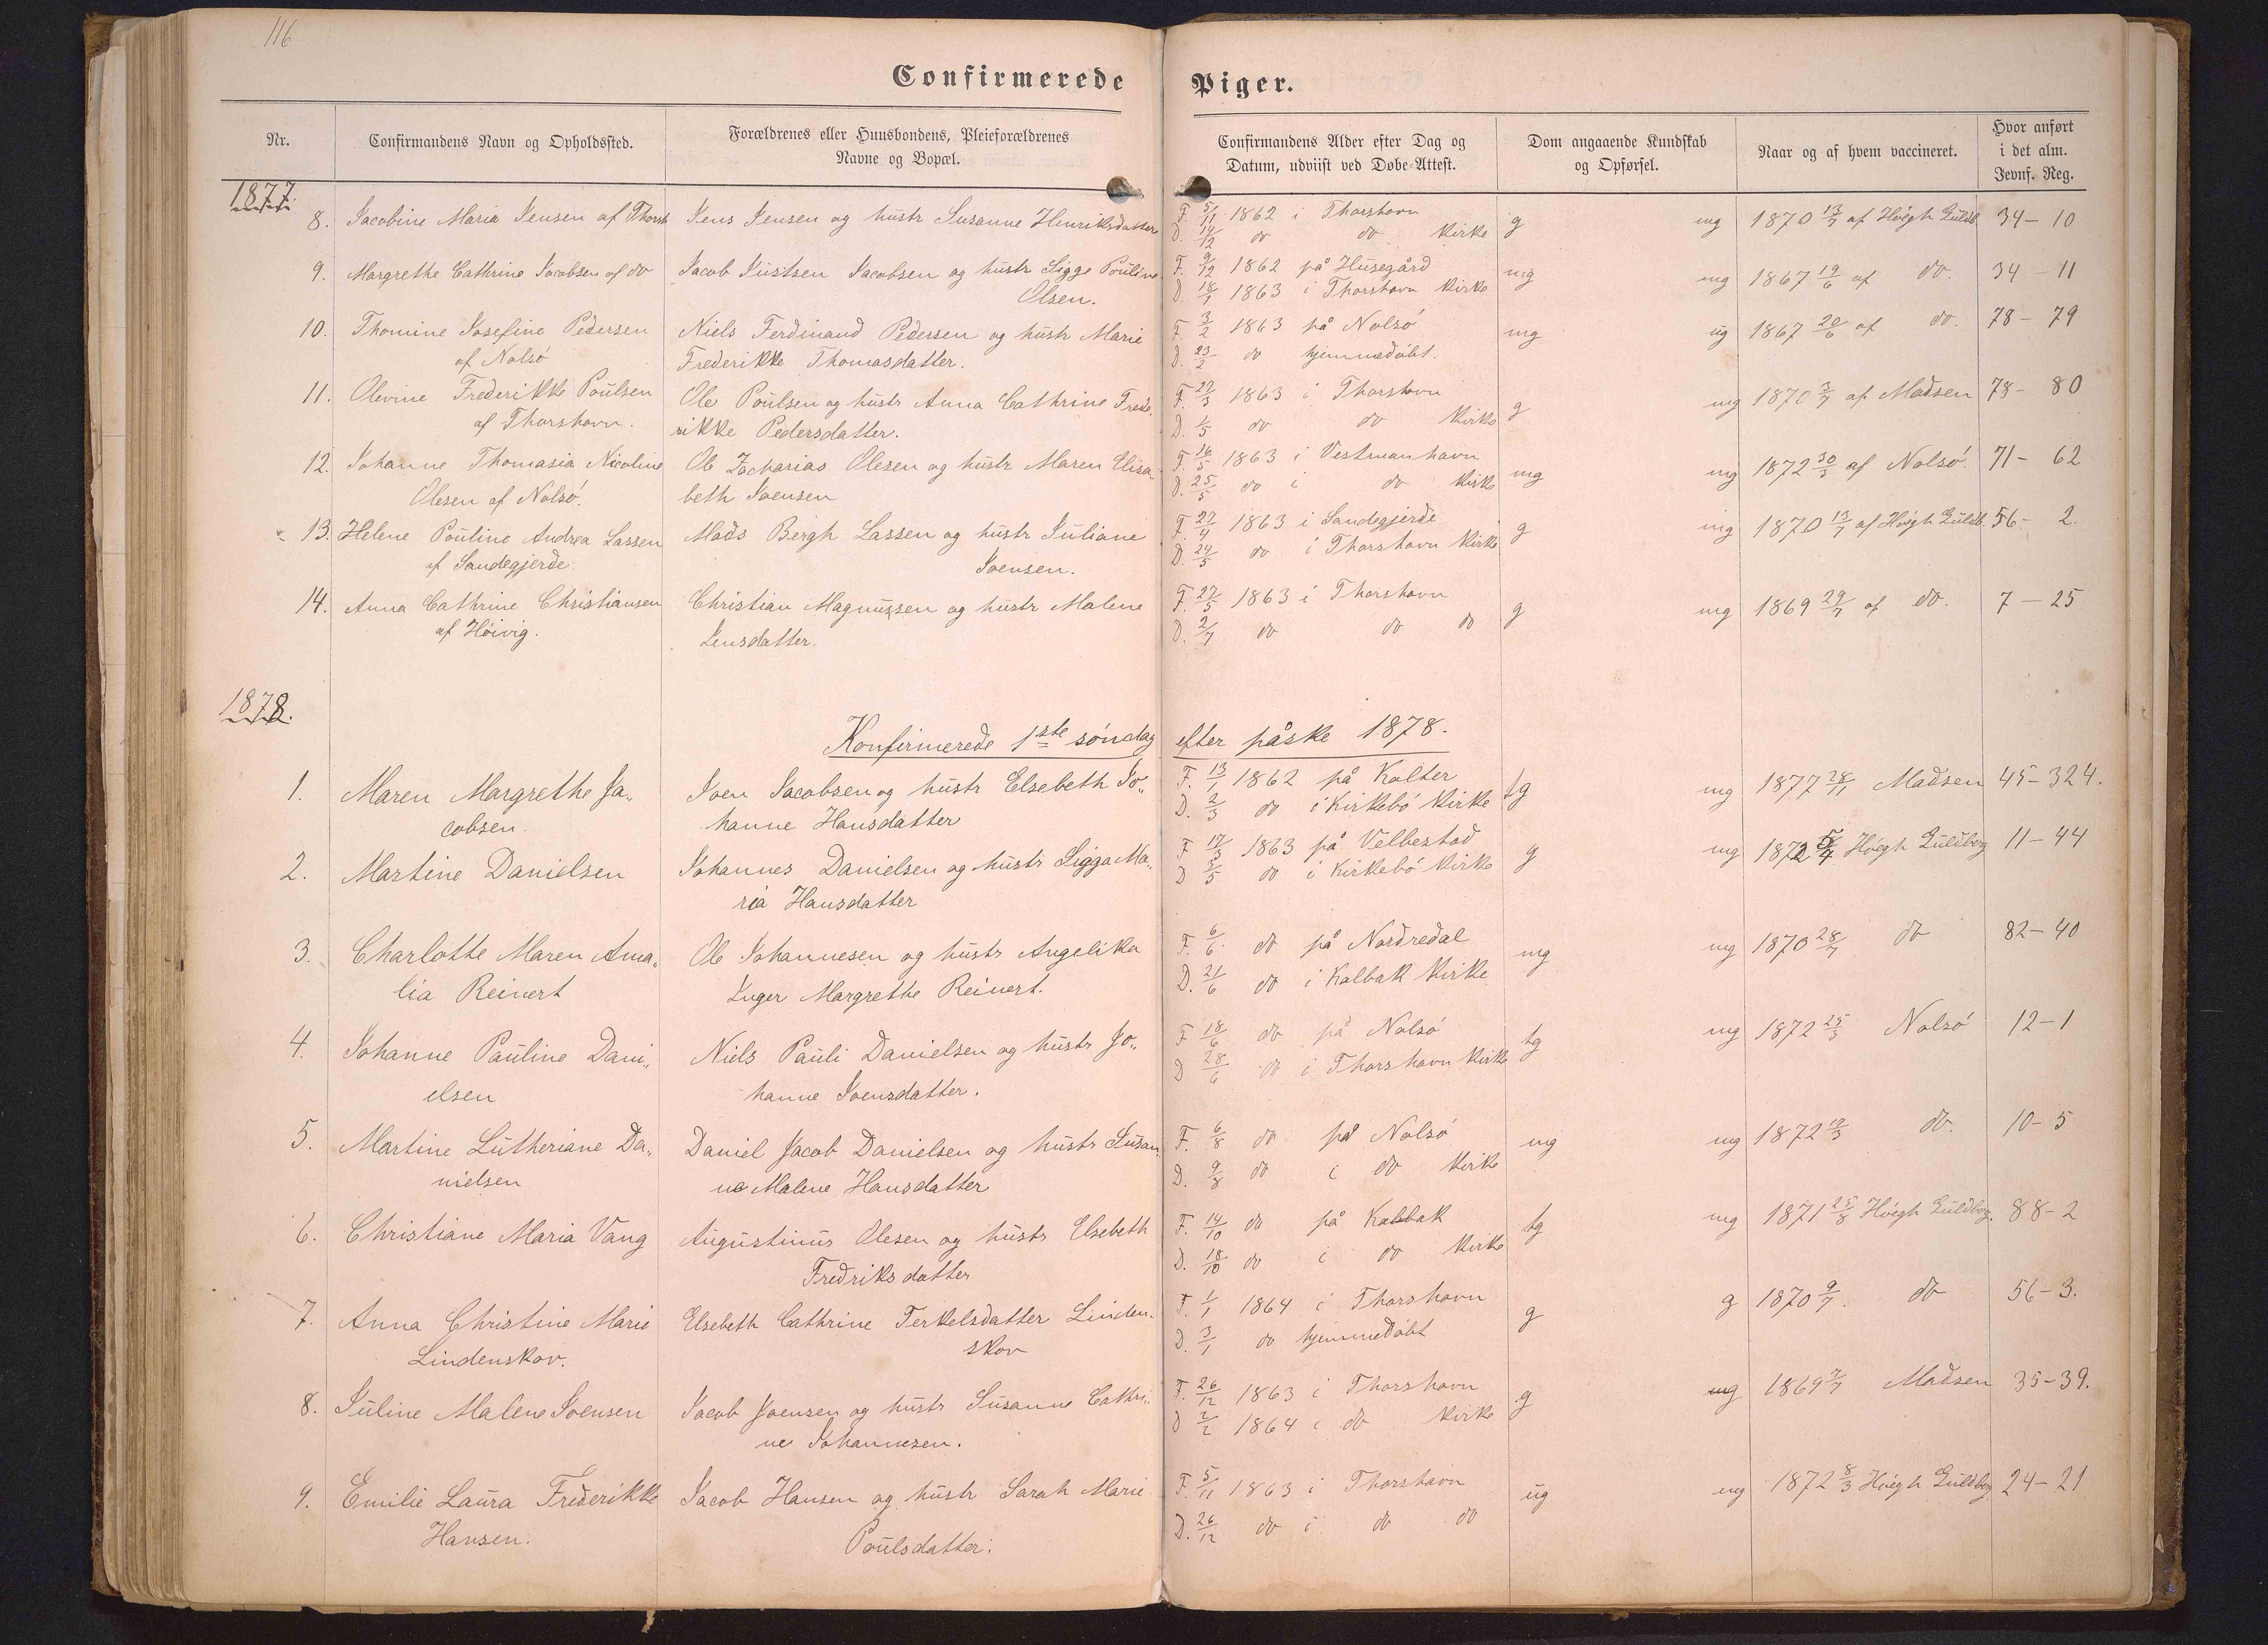 116
Confirmerede Piger.
Nr.
Confirmandens Navn og Opholdssted.
Forældrenes eller Huusbondens, Pleieforældrenes
Navne og Bopæl.
Confirmandens Alder efter Dag og
Datum, udviist ved Døbe-Attest.
Dom angaaende Kundskab
og Opførsel.
Naar og af hvem vaccineret.
Hvor anført
i det alm.
Jevnf. Reg.
1877
8. Jacobine Maria Jensen af Thorsh Jens Jensen og hustr Susanne Henriksdatter F. 5/11 1862 i Thorshavn g mg 1870 13/7 af Höegh Guldb. 34-10
D. 14/12 do do Kirke
9. Margrethe Cathrine Jacobsen af do Jacob Justsen Jacobsen og hustr Sigge Pouline F. 9/12 1862 på Husegård mg mg 1867 19/6 af do. 34-11
Olsen. D. 18/1 1863 i Thorshavn Kirke
10. Thomine Josefine Pedersen Niels Ferdinand Pedersen og hustr Marie F. 3/2 1863 på Nolsö mg ug 1867 20/6 af do. 78-79
af Nolsö Frederikke Thomasdatter. D. 23/2 do hjemmedöbt.
11. Olevine Frederikke Poulsen Ole Poulsen og hustr Anna Cathrine Frede- F. 27/3 1863 i Thorshavn g mg 1870 3/7 af Madsen 78-80
af Thorshavn. rikke Pedersdatter. D. 1/5 do do Kirke
12. Johanne Thomasia Nicoline Ole Zacharias Olesen og hustr Maren Elisa- F. 16/5 1863 i Vestmanhavn mg mg 1872 30/3 af Nolsö. 71-62
Olesen af Nolsö. beth Joensen D. 25/5 do i do Kirke
13. Helene Pouline Andrea Lassen Mads Bergh Lassen og hustr Juliane F. 27/4 1863 i Sandegjerde g mg 1870 13/7 af Höegh Guldb. 56-2.
af Sandegjerde. Joensen. D. 24/5 do i Thorshavn Kirke
14. Anna Cathrine Christiansen Christian Magnussen og hustr Malene F. 27/5 1863 i Thorshavn g mg 1869 29/7 af do. 7-25
af Höivig. Jensdatter. D. 2/7 do do do
1878.
Konfirmerede 1ste söndag efter påske 1878.
1. Maren Margrethe Ja- Joen Jacobsen og hustr Elsebeth Jo- F. 13/1 1862 på Kolter tg mg 1877 28/11 Madsen 45-324.
cobsen. hanne Hansdatter D. 2/3 do i Kirkebö Kirke
2. Martine Danielsen Johannes Danielsen og hustr Sigga Ma- F 17/3 1863 på Velbestad g mg 1872 5/4 Höegh Guldberg 11-44
ria Hansdatter D 3/5 do i Kirkebö Kirke
3. Charlotte Maren Ama- Ole Johannesen og hustr Angelika F. 6/6 do på Nordredal mg mg 1870 28/7 do 82-40
lia Reinert Inger Margrethe Reinert. D. 21/6 do i Kalbak Kirke
4. Johanne Pauline Dani- Niels Pauli Danielsen og hustr Jo- F 18/6 do på Nolsö tg mg 1872 25/3 Nolsö 12-1
elsen hanne Joensdatter. D 28/6 do i Thorshavn Kirke
5. Martine Lutheriane Da- Daniel Jacob Danielsen og hustr Susan- F. 6/8 do på Nolsö mg mg 1872 do. 10-5
nielsen ne Malene Hansdatter D. 9/8 do i do Kirke
6. Christiane Maria Vang Augustinus Olesen og hustr Elsebeth F. 14/10 do på Kalbak tg mg 1871 25/8 Höegh Guldbg. 88-2
Fredriksdatter D. 18/10 do i do Kirke
7. Anna Christine Marie Elsebeth Cathrine Terkelsdatter Linden- F. 1/1 1864 i Thorshavn g g 1870 9/7. do 56-3.
Lindenskov. skov D. 3/1 do hjemmedöbt
8. Juline Malene Joensen Jacob Joensen og hustr Susanne Cathri- F. 26/12 1863 i Thorshavn g mg 1869 7/7 Madsen 35-39.
ne Johannesen. D 2/2 1864 i do Kirke
9. Emilie Laura Frederikke Jacob Hansen og hustr Sarah Marie F. 5/11 1863 i Thorshavn ug mg 1872 8/3 Höegh Guldbg 24-21
Hansen. Poulsdatter. D. 26/12 do i do do